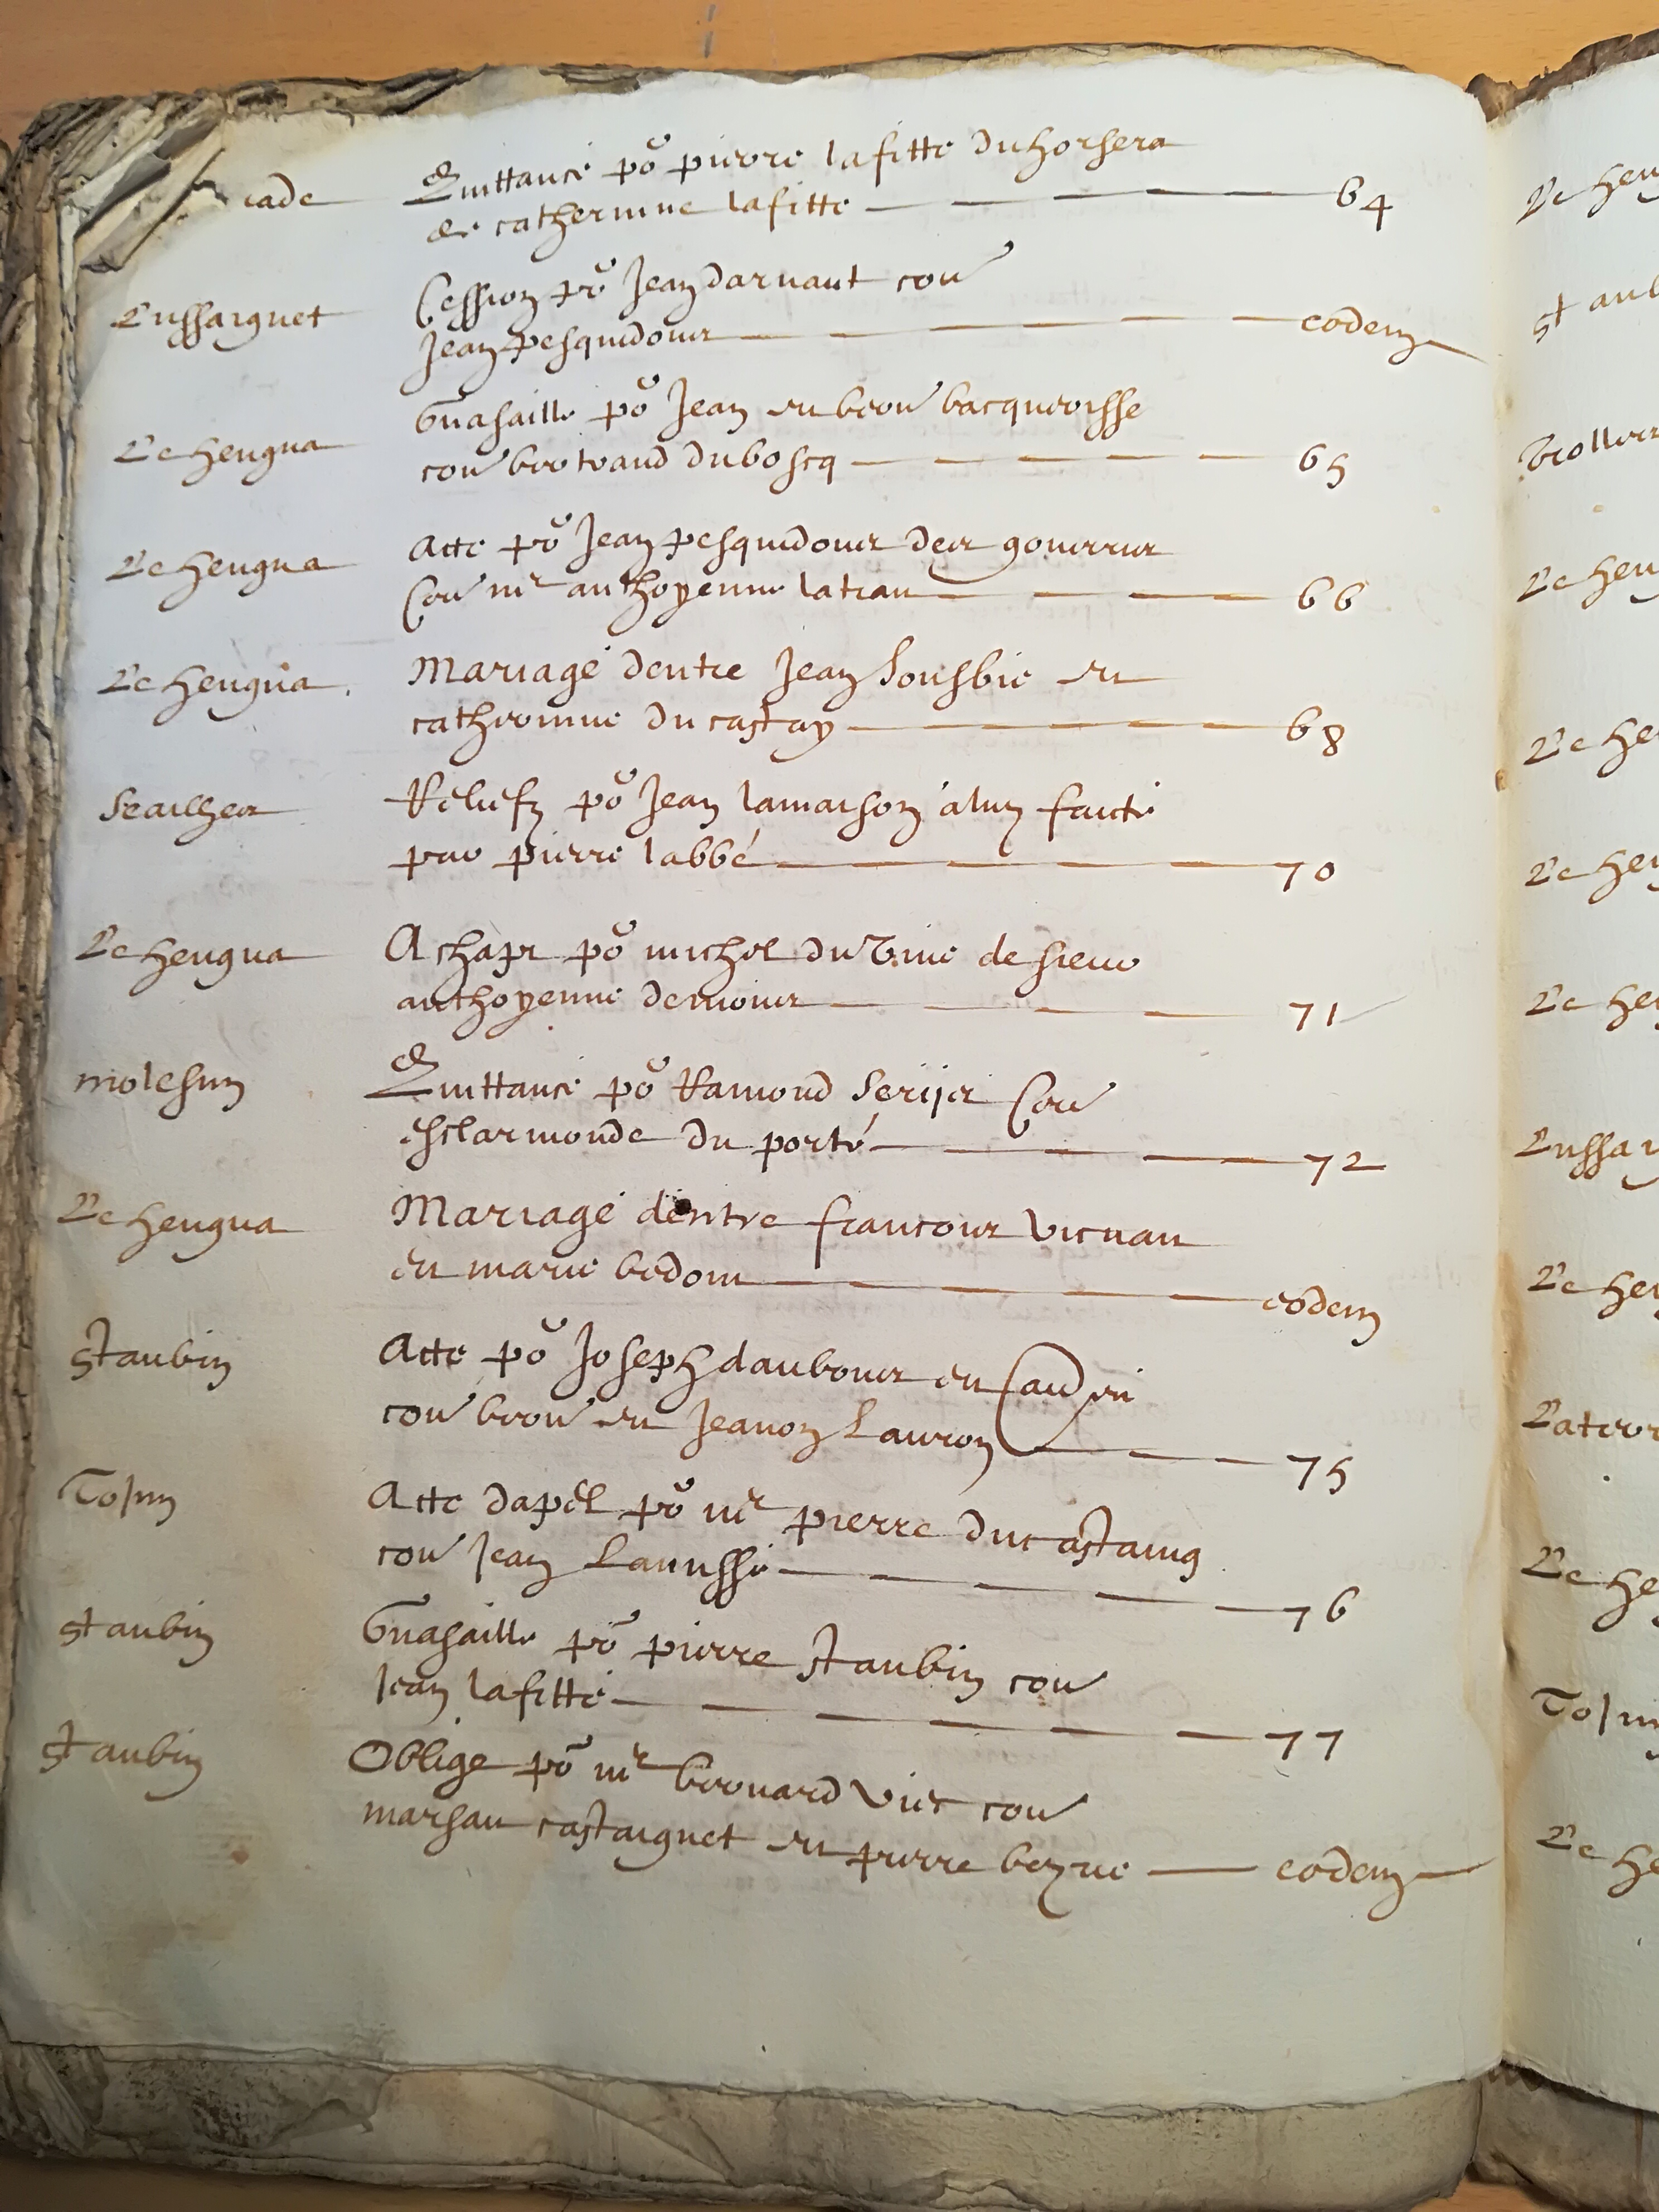 cade Quittance po pierre lafitte du horsera
de catherinne lafitte 64
Lussaignet Cession po Jean darnaut con
Jean pesquidoux eodem
Le hengua Guasaille po Jean et bern bacquerisse
con bertrand du boscq 65
Le hengua Acte po Jean pesquidoux
Con mr anthoyenne latrau 66
Le hengua Mariage dentre Jean Sousbie et
catherinne du castay 68
Relief po Jean lamaison a luy faicte
par pierre labbé 70
Le hengua Achapt po michel du Vine de sieur
anthoyenne 71
molesun Quittance po Ramond Con
esclarmonde du porté 72
Le hengua Mariage dentre francoix vignau
et marie bedout eodem
st aubin Acte po Joseph dauboux en
con bern et Jeanon Lauron 75
Tojun Acte dapel po mr pierre ducastaing
con Jean Lanusse 76
st aubin Guasaille po pierre st aubin con
Jean lafitte 77
st aubin Oblige po mr bernard Vies con
marsau castaignet et pierre bezue eodem
Le hen
st aub
Le heu
Le he
Le hey
Le hey
Lussai
Le hey
Le he
Tojun
Le he